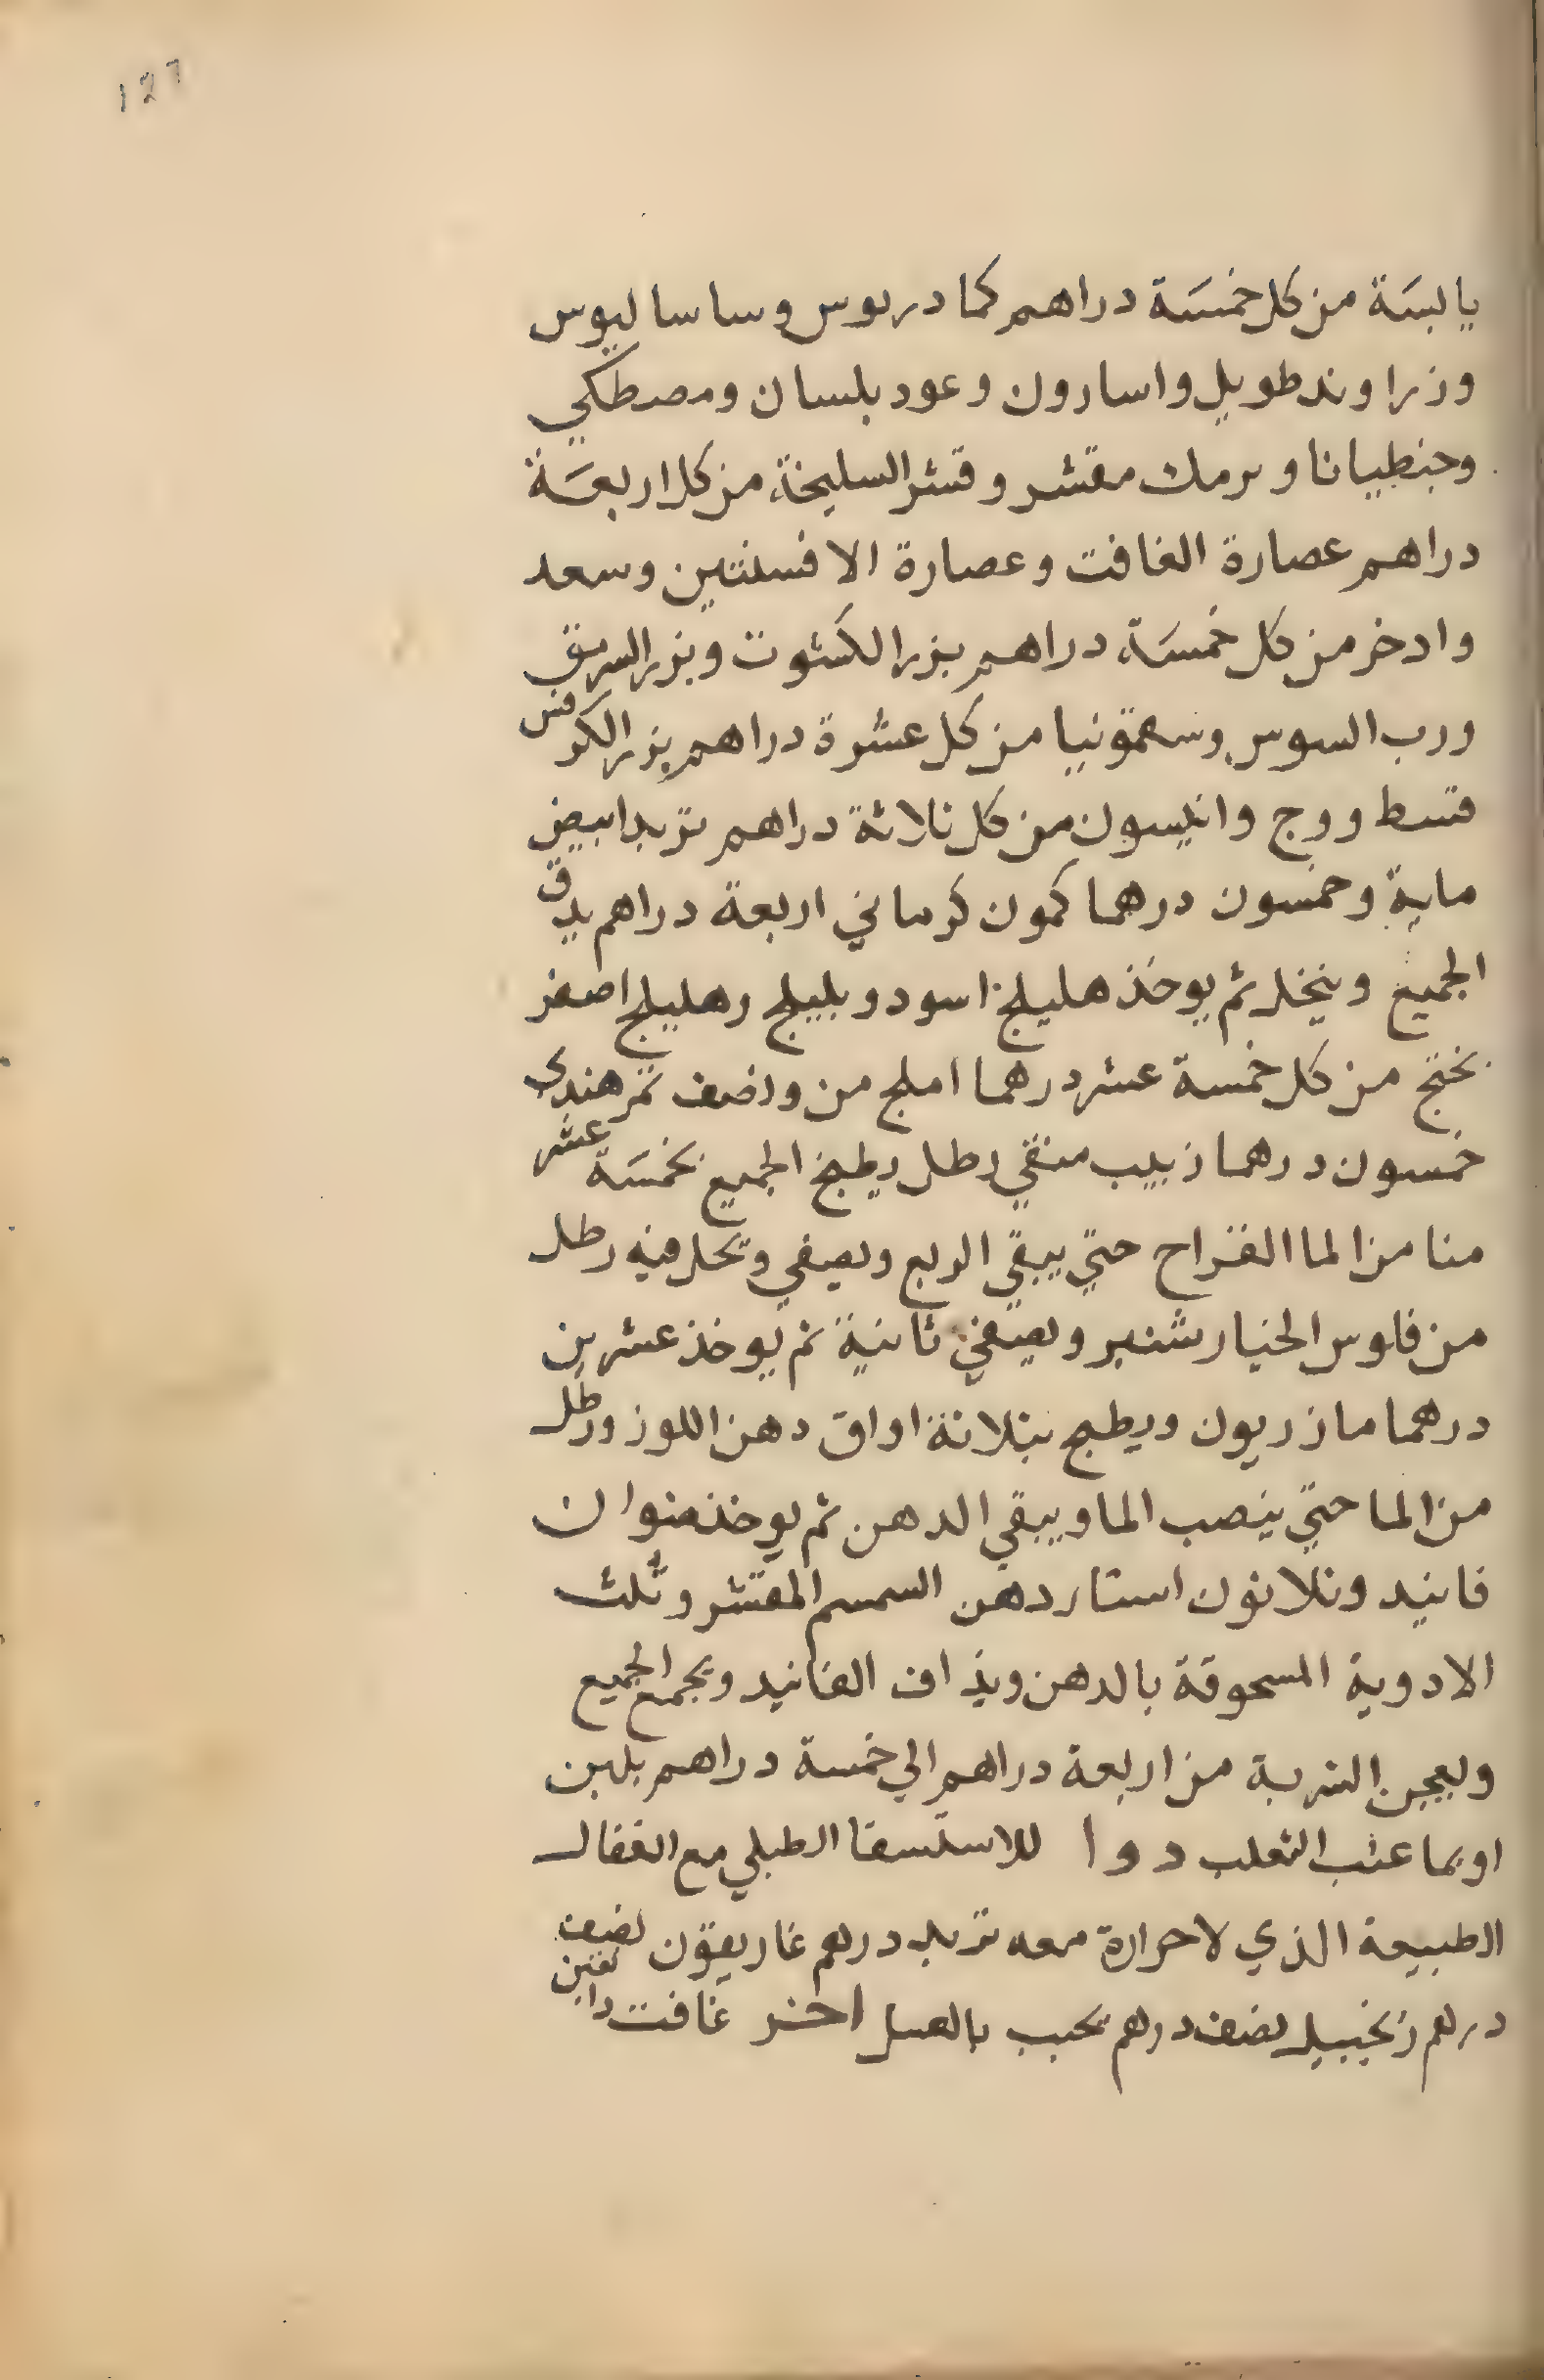 ١٢٦
يابسة من كل خمسة دراهم كمادريوس وساساليوس
وزراوند طويل واسارون وعود بلسان ومصطكي
وجنطيانا وبرمك مقشر وقشر السليخة من كل اربعة
دراهم عصارة الغافت وعصارة الافسنتين وسعد
وادخر من كل خمسة دراهم بزر الكشوت وبزر السرمق
ورب السوس وسقمونيا من كل عشرة دراهم بزر الكرفس
قسط ووج وانيسون من كل ثلاثة دراهم تربد ابيض
ماية وخمسون درهما كمون كرماني اربعة دراهم يدق
الجميع وينخل ثم يوخذ هليلج اسود وبليلج وهليلج اصفر
بختج من كل خمسة عشر درهما املج من ونصف تمر هندي
خمسون درهما زبيب منقي رطل ويطبخ الجميع بخمسة عشر
منا من الما القراح حتي يبقي الربع ويصفي ويحل فيه رطل
من فلوس الخيار شنبر ويصفي ثانية ثم يوخذ عشرين
درهما مازريون ويطبخ بثلاثة اواق دهن اللوز ورطل
من الما حتي ينصب الما ويبقي الدهن ثم يوخذ منوان
فانيد وثلاثون استار دهن السمسم المقشر وثلث
الادوية المسحوقة بالدهن ويذاف الفانيد ويجمع الجميع
ويعجن الشربة من اربعة دراهم الي خمسة دراهم بلبن
او بما عنب الثعلب دوا للاستسقا الطبلي مع اقفال
الطبيعة الذي لا حرارة معه تربد درهم غاريقون نصف
درهم زنجبيل نصف درهم يحبب بالعسل اخر غافت دانقين